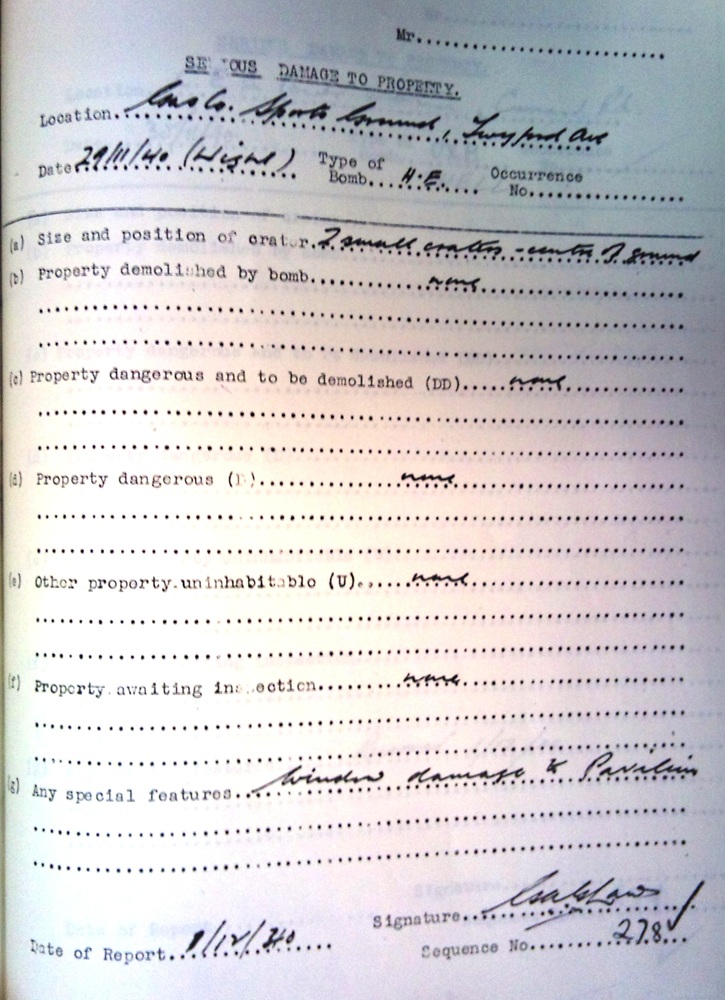 Mr.
SERIOUS DAMAGE TO PROPERTY.
Location. Gas Co. Sports Ground, Twyford Ave
Date. 29/11/40 (Night) Type of Bomb. H.E. Occurrence No.
(a) Size and position of crater. 2 small craters - centre of ground
(b) Property demolished by bomb. none
(c) Property dangerous and to be demolished (DD). none
(d) Property dangerous (D). none
(e) Other property uninhabitable (U). none
(f) Property awaiting inspection. none
(g) Any special features. Window damage to Pavilion
Signature.
Date of Report. /12/40 Sequence No. 278